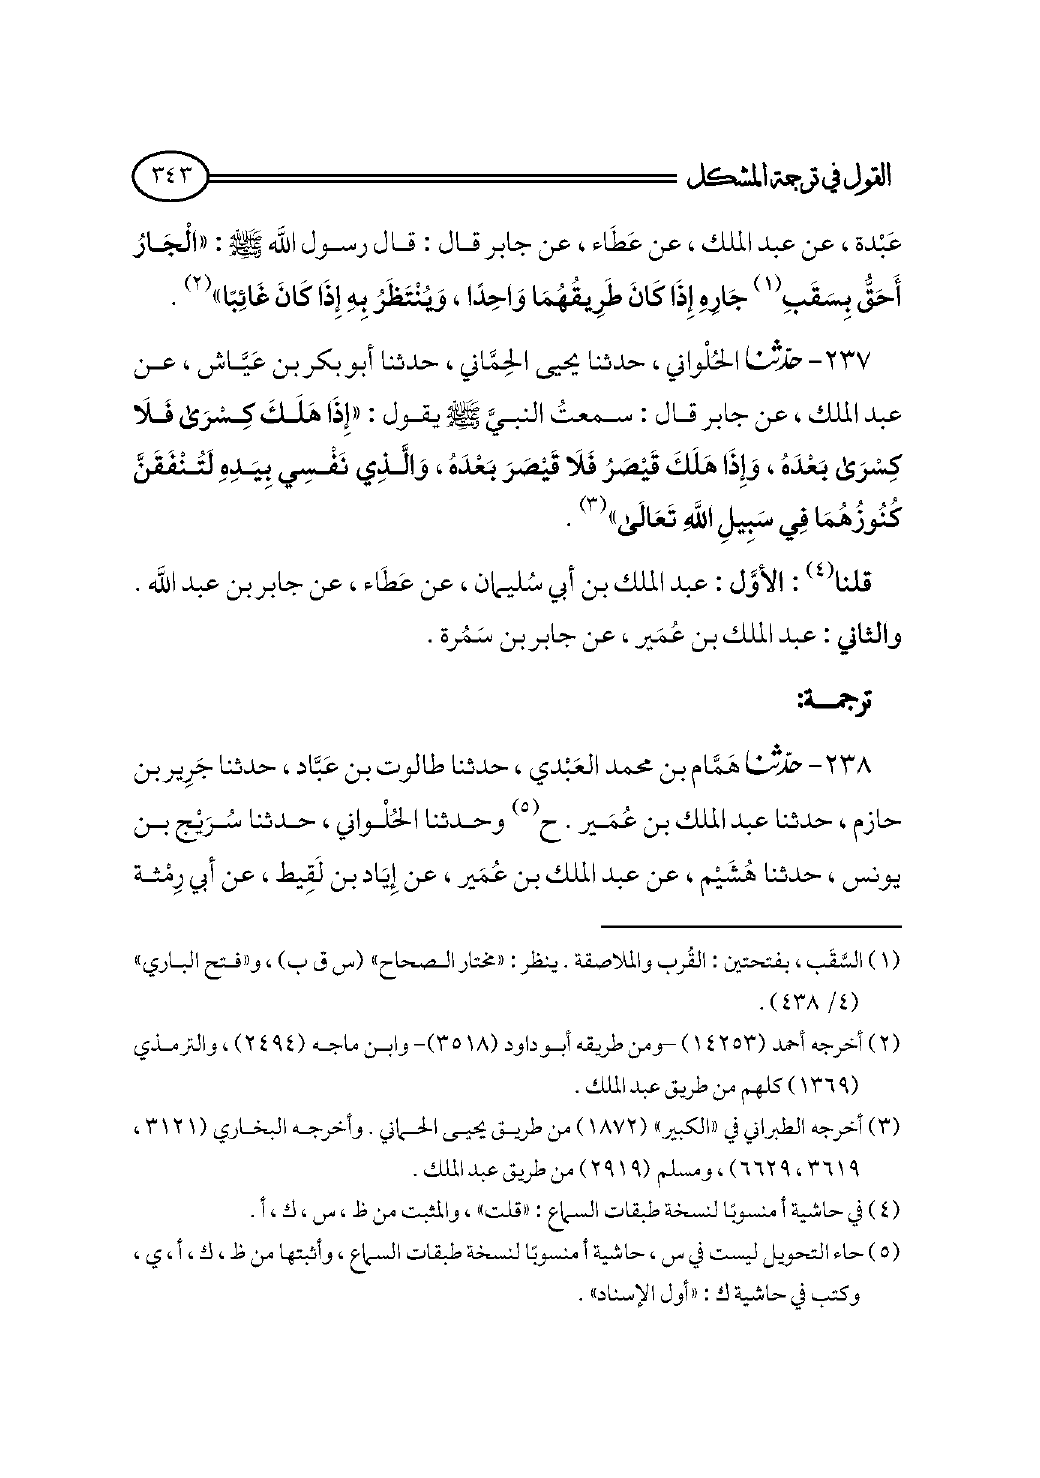 القول في ترجمة المشكل ٣٤٣
عَبْدة ، عن عبد الملك ، عن عَطَاء ، عن جابر قال : قال رسول اللَّه ﷺ : «الْجَارُ
أَحَقُّ بِسَقَبِ(١) جَارِهِ إِذَا كَانَ طَرِيقُهُمَا وَاحِدًا ، وَيُنْتَظَرُ بِهِ إِذَا كَانَ غَائِبًا»(٢) .
٢٣٧- حدّثنا الحُلْواني ، حدثنا يحيى الحِمَّاني ، حدثنا أبو بكر بن عَيَّاش ، عن
عبد الملك ، عن جابر قال : سمعتُ النبيَّ ﷺ يقول : «إِذَا هَلَكَ كِسْرَىٰ فَلَا
كِسْرَىٰ بَعْدَهُ ، وَإِذَا هَلَكَ قَيْصَرُ فَلَا قَيْصَرَ بَعْدَهُ ، وَالَّذِي نَفْسِي بِيَدِهِ لَتُنْفَقَنَّ
كُنُوزُهُمَا فِي سَبِيلِ اللَّهِ تَعَالَىٰ»(٣) .
قلنا(٤) : الأوَّل : عبد الملك بن أبي سُليمان ، عن عَطَاء ، عن جابر بن عبد اللَّه .
والثاني : عبد الملك بن عُمَير ، عن جابر بن سَمُرة .
ترجمـة:
٢٣٨- حدّثنا هَمَّام بن محمد العَبْدي ، حدثنا طالوت بن عَبَّاد ، حدثنا جَرِير بن
حازم ، حدثنا عبد الملك بن عُمَير . ح(٥) وحدثنا الحُلْواني ، حدثنا سُرَيْج بن
يونس ، حدثنا هُشَيْم ، عن عبد الملك بن عُمَير ، عن إِيَاد بن لَقِيط ، عن أبي رِمْثة
(١) السَّقَب ، بفتحتين : القُرب والملاصقة . ينظر : «مختار الصحاح» (س ق ب) ، و«فتح الباري»
(٤/ ٤٣٨) .
(٢) أخرجه أحمد (١٤٢٥٣) -ومن طريقه أبو داود (٣٥١٨)- وابن ماجه (٢٤٩٤) ، والترمذي
(١٣٦٩) كلهم من طريق عبد الملك .
(٣) أخرجه الطبراني في «الكبير» (١٨٧٢) من طريق يحيى الحماني . وأخرجه البخاري (٣١٢١ ،
٣٦١٩ ، ٦٦٢٩) ، ومسلم (٢٩١٩) من طريق عبد الملك .
(٤) في حاشية أ منسوبًا لنسخة طبقات السماع : «قلت» ، والمثبت من ظ ، س ، ك ، أ .
(٥) حاء التحويل ليست في س ، حاشية أ منسوبًا لنسخة طبقات السماع ، وأثبتها من ظ ، ك ، أ ، ي ،
وكتب في حاشية ك : «أول الإسناد» .